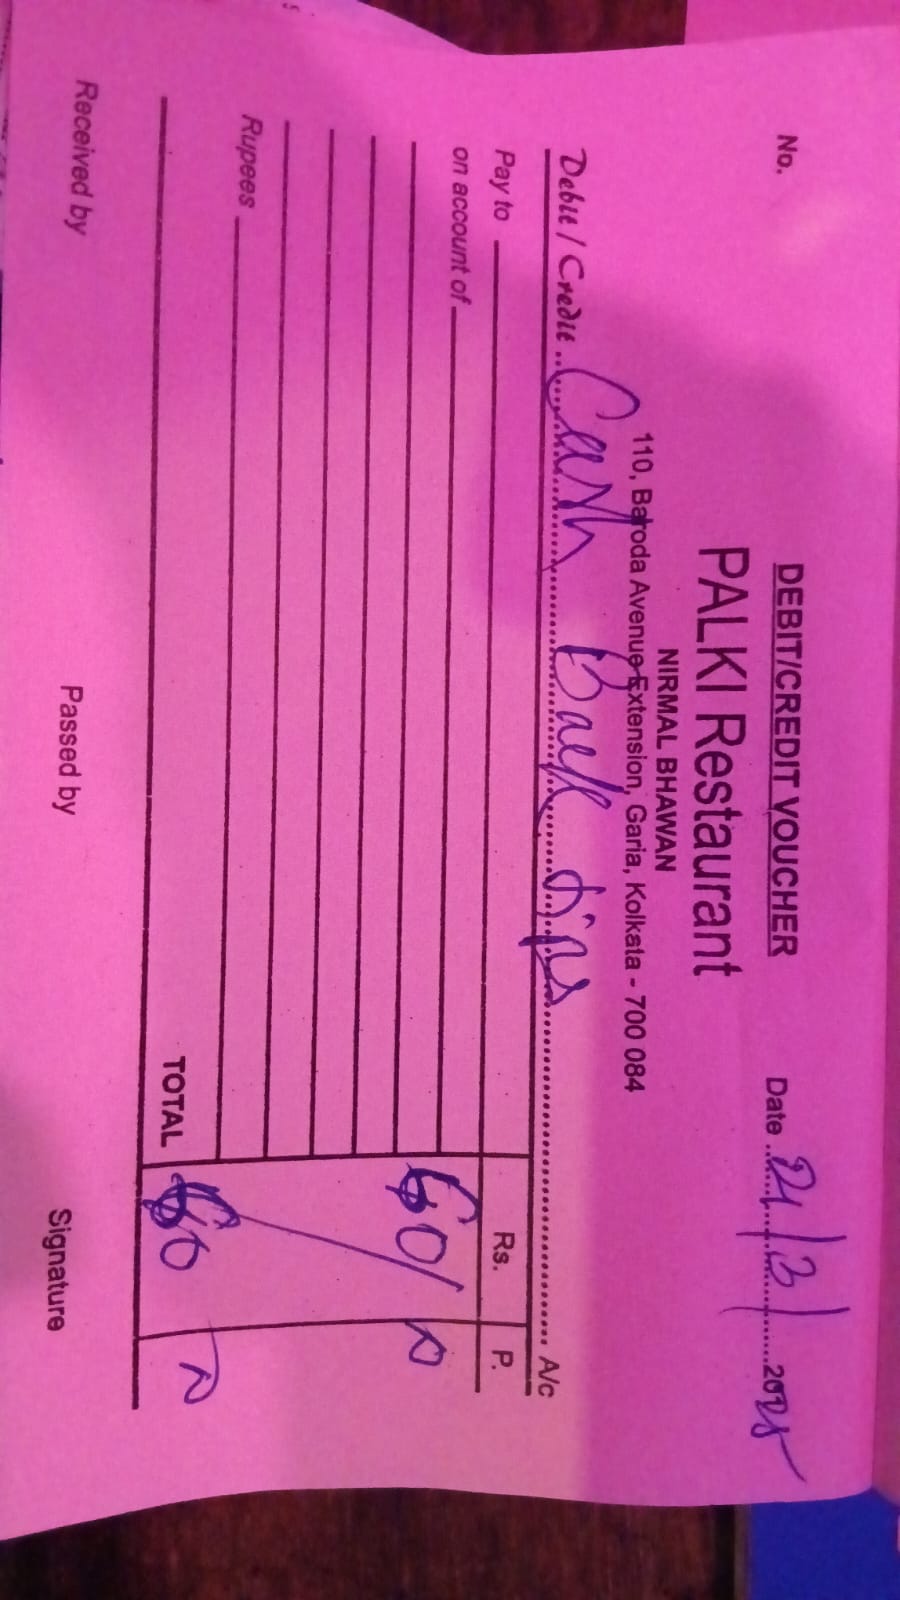 DEBIT/CREDIT VOUCHER
No. Date 21/3/2025
PALKI Restaurant
NIRMAL BHAWAN
110, Baroda Avenue Extension, Garia, Kolkata - 700 084
Debit / Credit Cash Back tips A/c
Pay to Rs. P.
on account of 60/
Rupees
TOTAL 60
Received by Passed by Signature